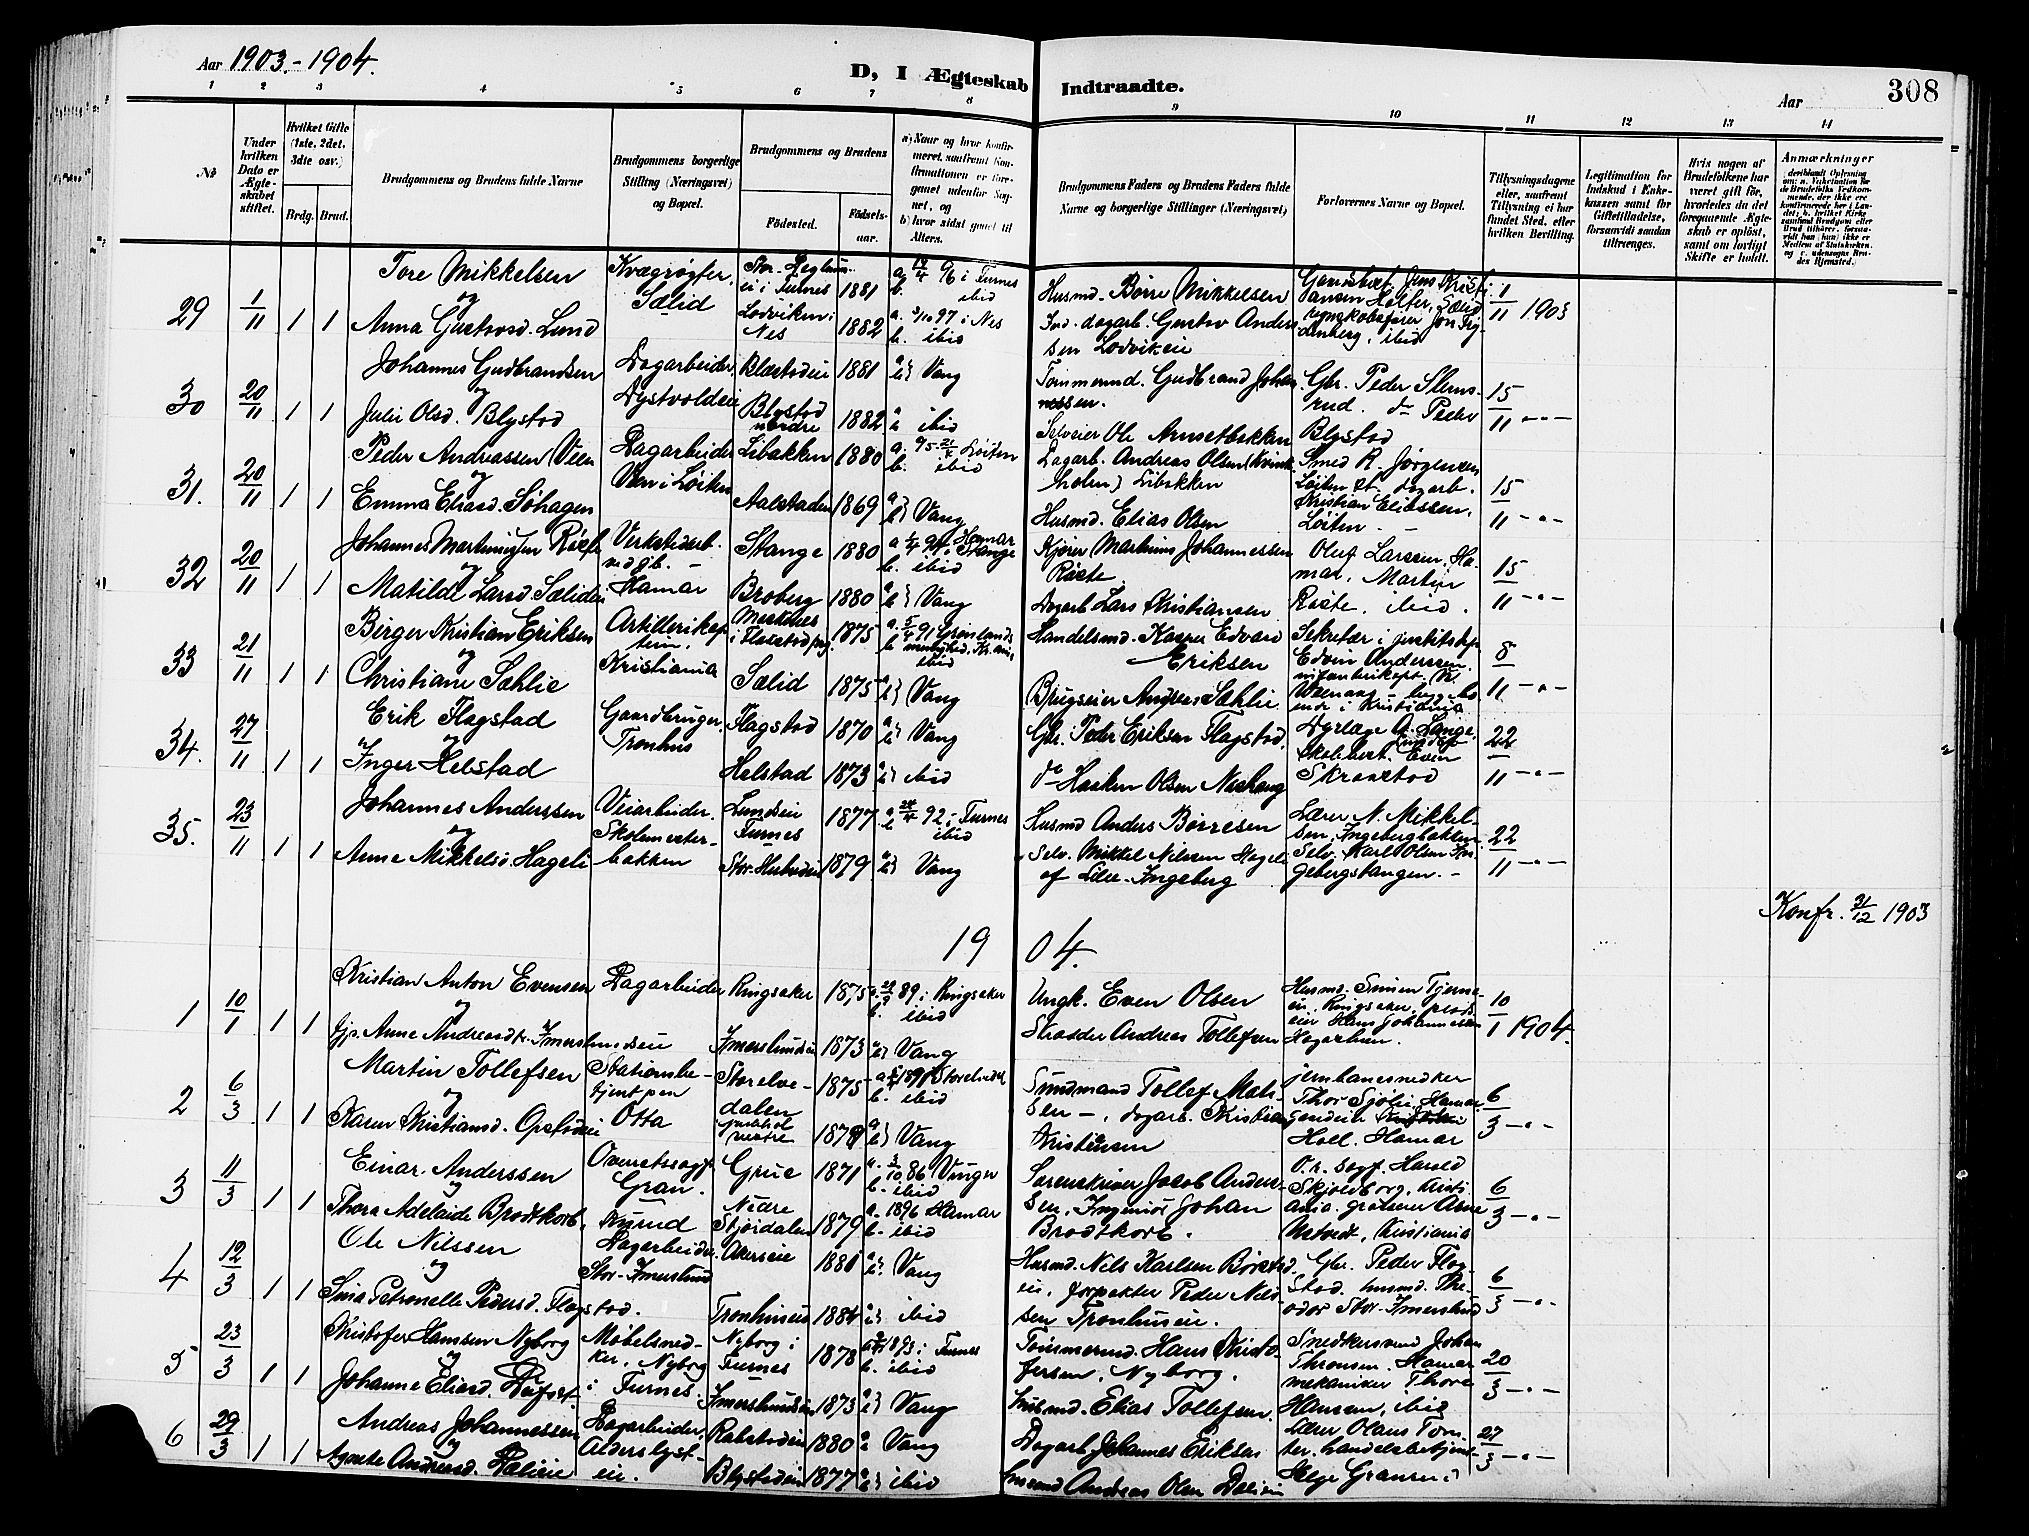 Aar 1903.-1904.
D, I Ægteskab Indtraadte.
Aar
308
1 2 3 4 5 6 7 8 9 10 11 12 13 14
No
Under hvilken Dato er Ægteskabet stiftet.
Hvilket Gifte (1ste, 2det, 3dte osv.)
Brdg. Brud.
Brudgommens og Brudens fulde Navne
Brudgommens borgerlige Stilling (Næringsvei) og Bopæl.
Brudgommens og Brudens
Fødested.
Fødselsaar.
a) Naar og hvor konfirmeret, samfremt Konfirmationen er foregaaet udenfor Sognet, og
b) hvor sidst gaaet til Alters.
Brudgommens Faders og Brudens Faders fulde Navne og borgerlige Stillinger (Næringsvei)
Forlovernes Navne og Bopæl.
Tillysningsdagene eller, saafremt Tillysning ei har fundet Sted, efter hvilken Bevilling.
Legitimation for Indskud i Enkekassen samt for Giftetilladelse, forsaavidt saadan tiltrænges.
Hvis nogen af Brudefolkene har været gift før, hvorledes da det foregaaende Ægteskab er opløst, samt om lovligt Skifte er holdt.
Anmærkninger
29 1/11 1 1
Tore Mikkelsen
og
Anna Gustavsd. Lund
Kvægrøgter,
Sælid
i Furnes 1881
Lodviken i
Nes 1882
a. 19/4 96 i Furnes
b. ibid
a. 3/10 97 i Nes
b. ibid
Husmd. Børre Mikkelsen
Ind. dagarb. Gustav Andersen Lodvikeie
1/11 1903
30 20/11 1 1
Johannes Gudbrandsen
og
Julie Olsd. Blystad
Dagarbeider,
Dystvoldeie
Blæstadeie 1881
Blystad
nordre 1882
a b} Vang
a b ibid
Tømmermd. Gudbrand Johannessen.
Selveier Ole Arnsetbakken
Gbr. Peder Slemsrud. do Peder
Blystad
15/11 -"-
31. 20/11 1 1
Peder Andreassen Veen
og
Emma Eliasd. Søhagen
Dagarbeider
Veen i Løiten
Libakken 1880
Aalstadeie 1869
a. 95 21/4 Løiten
b. ibid
a b} Vang
Dagarb. Andreas Olsen (Kvinkholen) Libakken
Husmd. Elias Olsen
Smed R. Jørgensen
Løiten et. dagarb.
Kristian Eliassen,
Løiten. -
15/11 -"-
32 20/11 1 1
Johannes Martiniusen Røste
og
Matilde Larsd. Sælideie
Verkstedarb.
ved jb. -
Hamar
Stange 1880
Broberg 1880
b. ibid
a b} Vang
Kjører Martinius Johannessen
Røste
Dagarb. Lars Kristiansen
Oluf Larsen, Hamar, Martin
Røste, ibid.
15/11 -"-
33 21/11 1 1
Birger Kristian Eriksen
og
Christiane Sæhlie
Artillerikaptein.
Kristiania
1875
Sælid 1875
a. 5/4 91 Grønlands
b menighed. Kr.ania
ibid
a b} Vang
Handelsmd. Kasper Edvard
Eriksen
Brugseier Anders Sæhlie
Sekretær i justitsdep
Edvin Anderssen.
8/11 -"-
34. 27/11 1 1
Erik Flagstad
og
Inger Helstad
Gaardbruger,
Tronhus
Flagstad 1870
Helstad 1873
a b} Vang
a b} ibid
Gbr. Peder Eriksen Flagstad.
do Haaken Olsen Næshang
Dyrlæge A. Lange.
Even
Skramstad
22/11 -"-
35. 23/11 1 1
Johannes Anderssen
og
Anne Mikkelsd. Hageli
Veiarbeider.
Skolemesterbakken
Lundseie
Furnes 1877
Stor-Hubredeie 1879
92 i Furnes
b ibid
a b} Vang
Husmd Anders Børresen
Selv. Mikkel Nilssen Hageli
af Lille-Ingeberg
Lærer N. Mikkelsen, Ingebergbakken
Selv. Karl Olsen Ingebergstangen. -
22/11 -"-
Konfr. 31/12 1903
1904.
1 10/1 1 1
Kristian Anton Evensen
og
Anne Andreasdtr. Imerslundseie
Dagarbeider
Ringsaker 1875
Imerslundseie 1873
89 i Ringsaker
b. ibid
a b} Vang
Ungk. Even Olsen
Skrædder Andreas Tollefsen
Husmd. Simen Tjerneeie, Ringsaker, pladseier Hans Johannessen
10/1 1904.
2 6/3 1 1
Martin Tollefsen
og
Karen Kristiansd. Opsadeie
Stationsbetjent paa
Otta
Storelvedalen 1875
1879
1891 Storelvedal
b. ibid
a b} Vang
Sundmand Tollef Mathsen -, dagarb. Kristian
Kristensen
jernbanesnedker
Thor Sjølie, Hamar
Holl. Hamar
6/3 -"-
3 11/3 1 1
Einar. Anderssen
og
Thora Adelaide Brodtkorb,
Overretssagf.
Gran.
Kurud
Grue 1871
Nedre
Stjørdalen 1879
a. 3/10 86 Vinger
b. ibid
a. 1896 Hamar
b. ibid
Sorenskriver Jacob Anderssen, Ingeniør Johan
Brodtkorb.
O.r. sagf. Harald
Skjoldborg, Kristiania, grosserer Arne
Kristiania
6/3 -"-
4 12/3 1 1
Ole Nilssen
og
Sina Petronelle Pedersd. Flagstad.
Dagarbeider.
Stor-Imerslund
Akerseie 1881
Tronhuseie 1884
a b. Vang
a b} ibid
Husmd Nils Karlsen Børstadeie, forpakter Peder Nilssen Tronhuseie.
Gbr. Peder Flagstad. husmd. Theodor Stor-Imerslund
6/3 -"-
5 23/3 1 1
Kristofer Hansen Nyborg
og
Johanne Eliasd.
Møbelsnedker, Nyborg
i Furnes.
Nyborg i
Furnes 1878
Imerslundseie 1873
1893 i Furnes
b. ibid
a b} Vang
Tømmermd. Hans Kristofersen, Nyborg.
Husmd. Elias Tollefsen.
Snedkersvend Johan
Thronsen. Hamar
mekaniker Thore
Hansen, ibid
20/3 -"-
6 29/3 1 1
Andreas Johannessen
og
Agnete Andreasd. Dælieie
Dagarbeider,
Alderslysteie.
Rabstadeie 1880
Blystadeie 1877
a b Vang
a b} ibid
Dagarb. Johannes Eriksen
Husmd Andreas Olsen Dælieie
Lærer Olaus Tomter. handelsbetjent
Helge Gransen
27/3 -"-